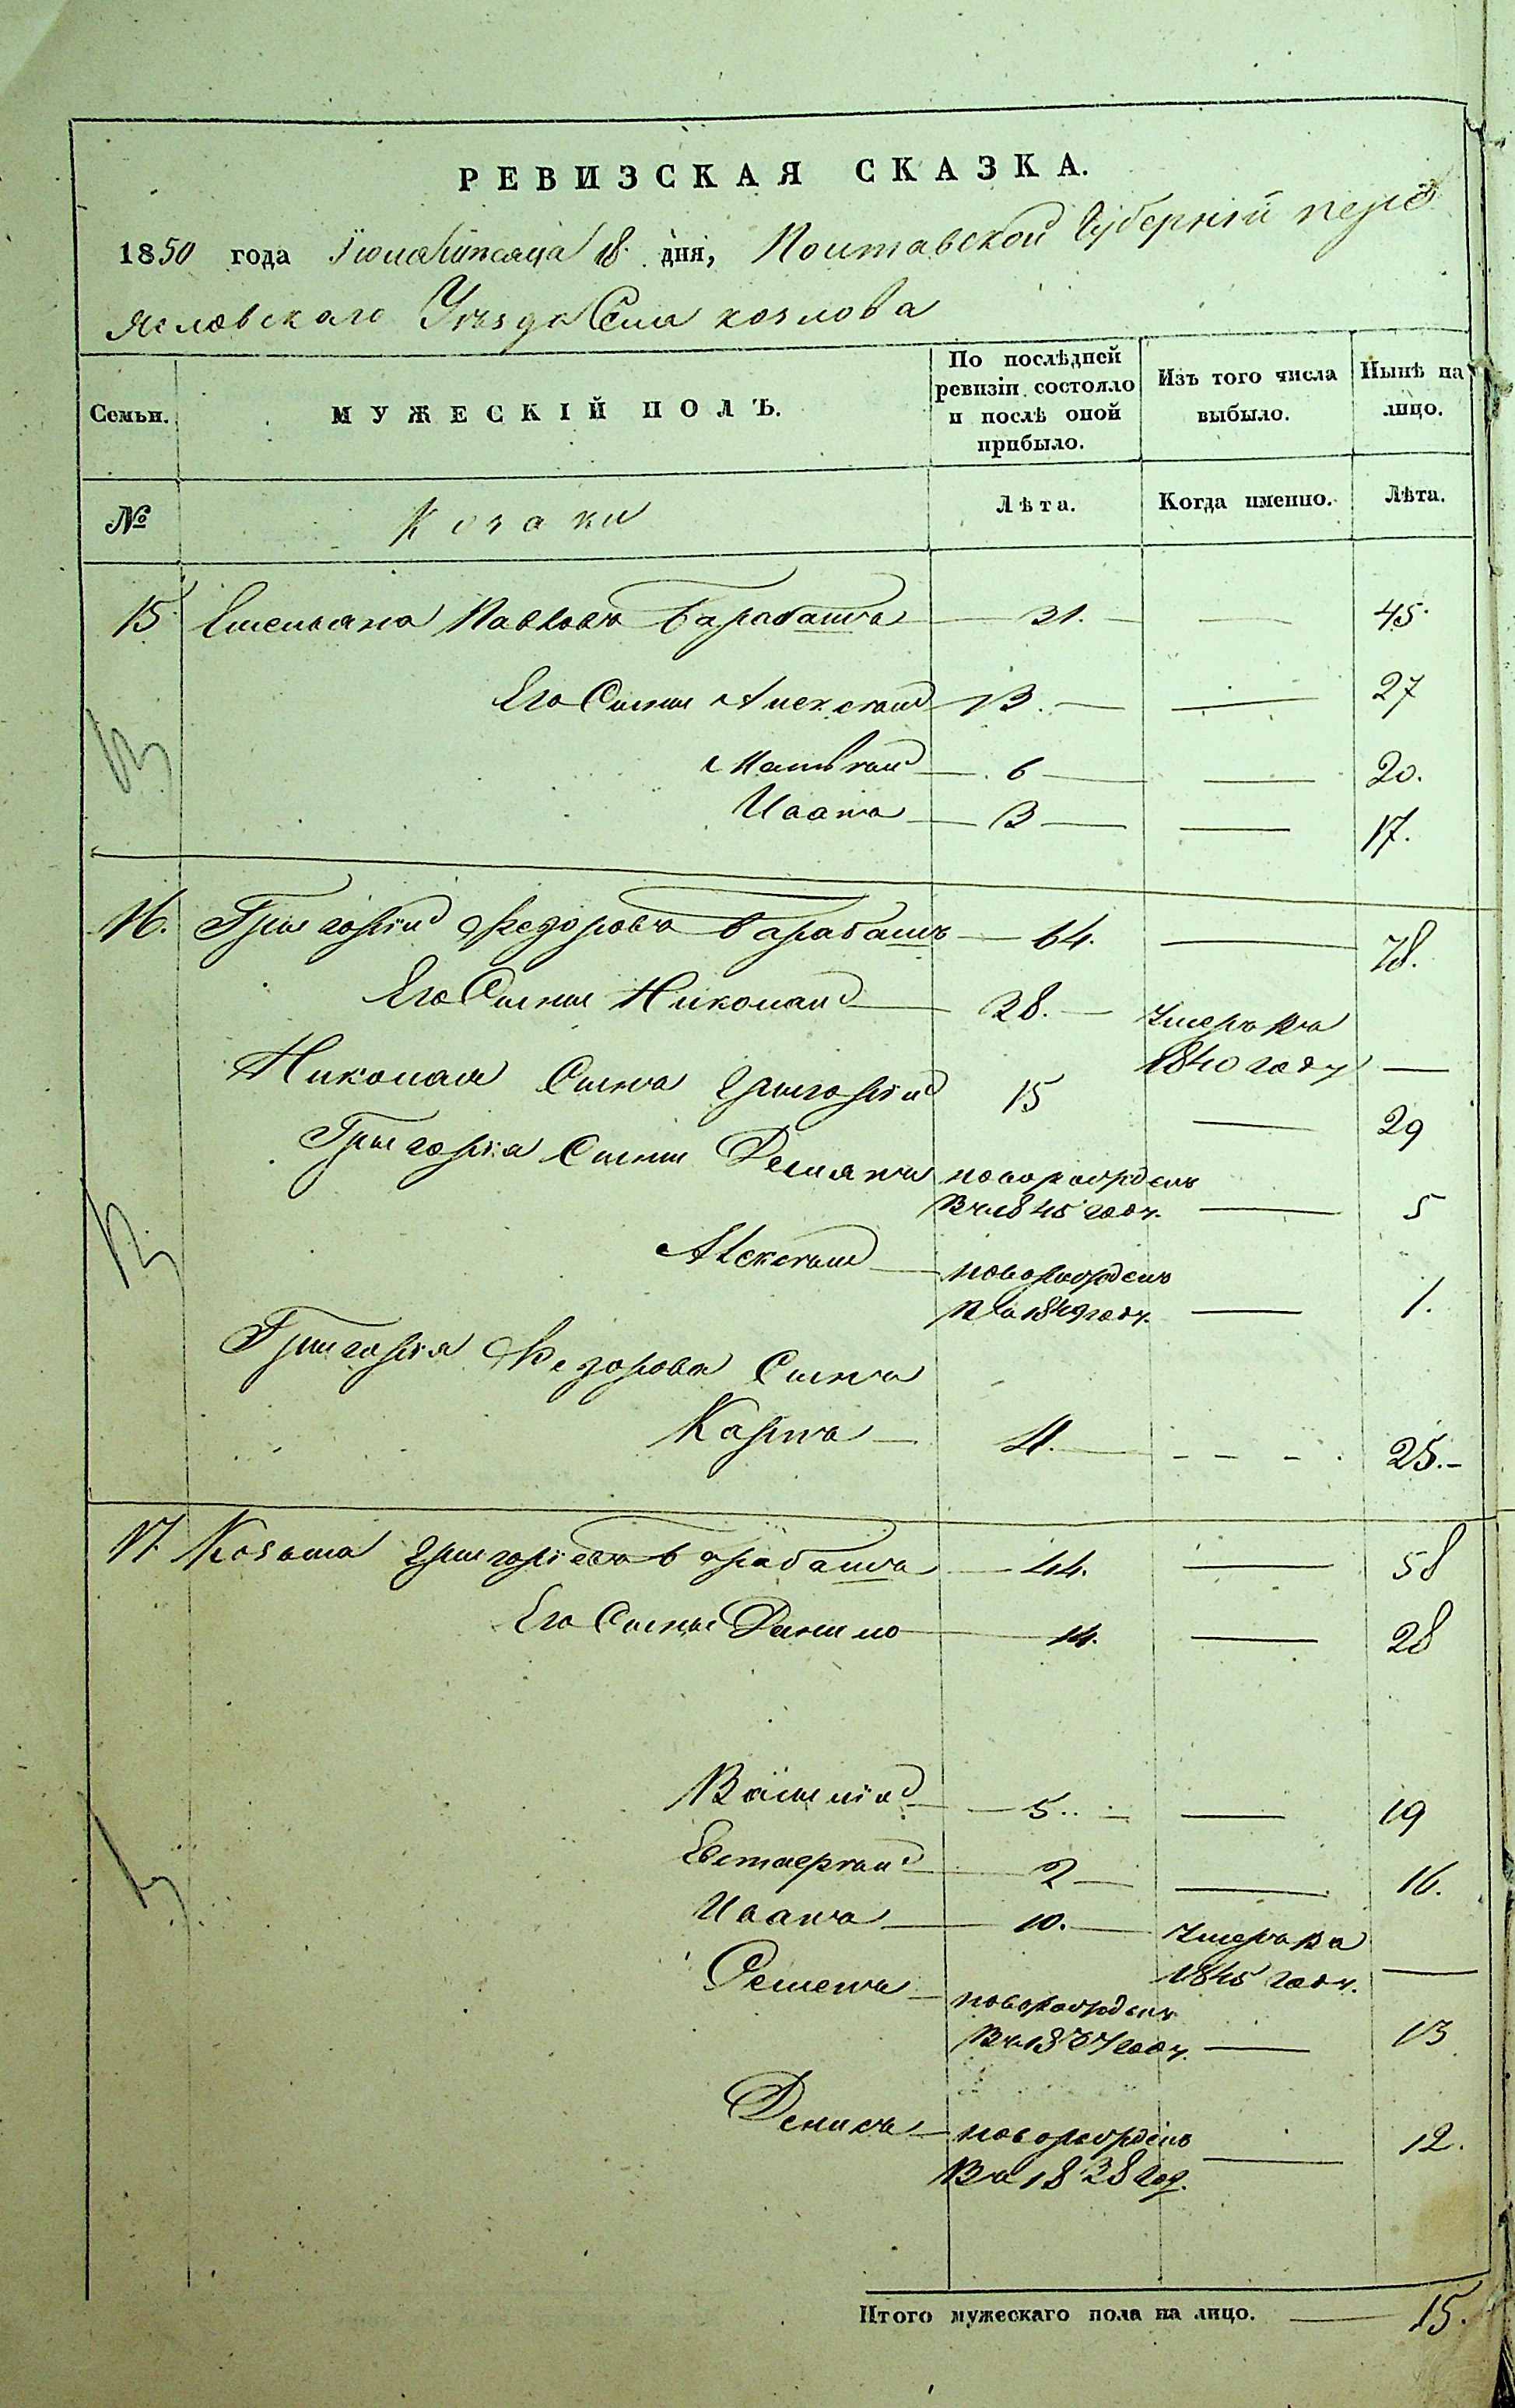 РЕВИЗСКАЯ СКАЗКА.
1850 года Іюля мѣсяца 18 дня, Полтавской Губерніи пере
яславскаго Уѣзда Села козлова
Семьи. МУЖЕСКІЙ ПОЛЪ. По послѣдней ревизіи состояло и послѣ оной прибыло. Изъ того числа выбыло. Нынѣ на лицо.
№ Козаки Лѣта. Когда именно. Лѣта.
15 Емельянъ Павловъ Барабашъ — 31. — — 45.
Его Сыны Алексѣй 13. — — 27
Матвѣй — 6 — — 20.
Иванъ — 3 — — 17.
16. Григорій Федоровъ Барабашъ — 64. — 78.
Его Сыны Николай — 38. — Умеръ въ
1840 году —
Николая Сынъ Григорій 15 — 29
Григорія Сыны Демянъ новорожденъ
въ 1845 году. — 5
Алексѣй — новорожденъ
въ 1849 году. — 1.
Григорія Федорова Сынъ
Карпъ — 11. — - - - 25.-
17. Козьма Григоріевъ Барабашъ — 44. — 58
Его Сыны Данило — 14. — 28
Василій — 5.. — — 19
Евстафій — 2 — — 16.
Иванъ — 10. — Умеръ въ
1845 году. —
Семенъ — новорожденъ
въ 1837 году. — 13
Денисъ — новорожденъ
въ 1838 год. — 12.
Итого мужескаго пола на лицо. — 15.